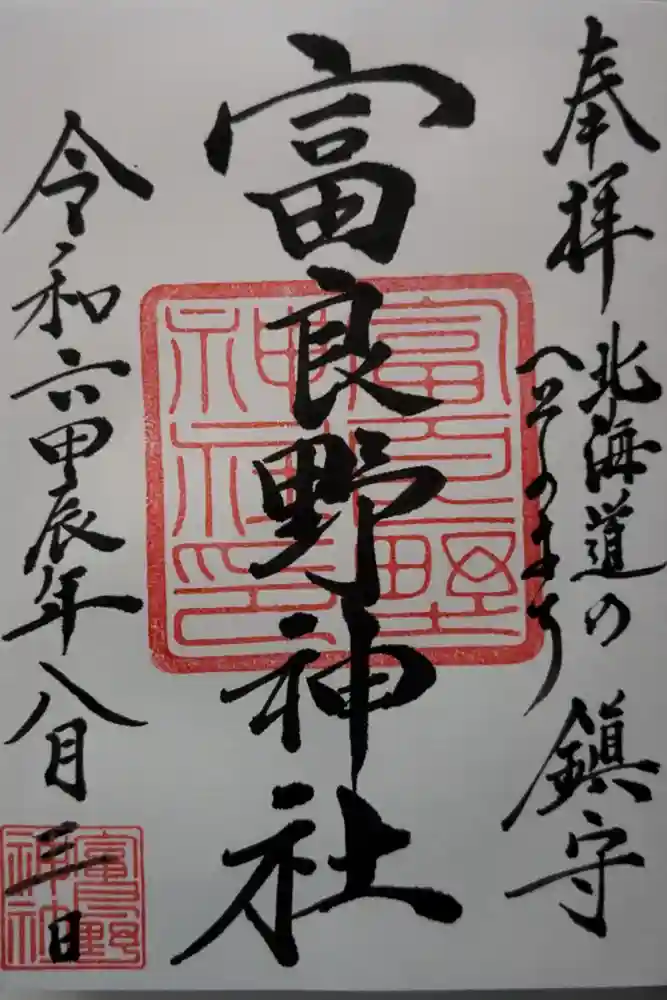 奉拝
北海道の
へそのまち
鎮守
富良野神社
富良野神社印
令和六甲辰年八月三日
富良野神社